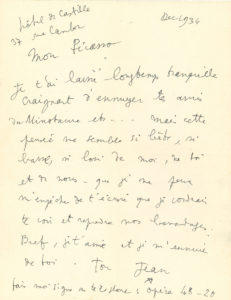 Hôtel de Castille
37 rue Cambon
Dec 1934
Mon Picasso
Je t'ai laissé longtemps tranquille
craignant d'ennuyer les amis
du Minotaure etc... mais cette
pensée me semble si bête, si
basse, si loin de moi, de toi
et de nous que je ne peux
m'empêcher de t'écrire que je voudrais
te voir et reprendre nos bavardages.
Bref, je t'aime et je m'ennuie
de toi. Ton Jean
fais moi signe ou téléphone : Opéra 48-20